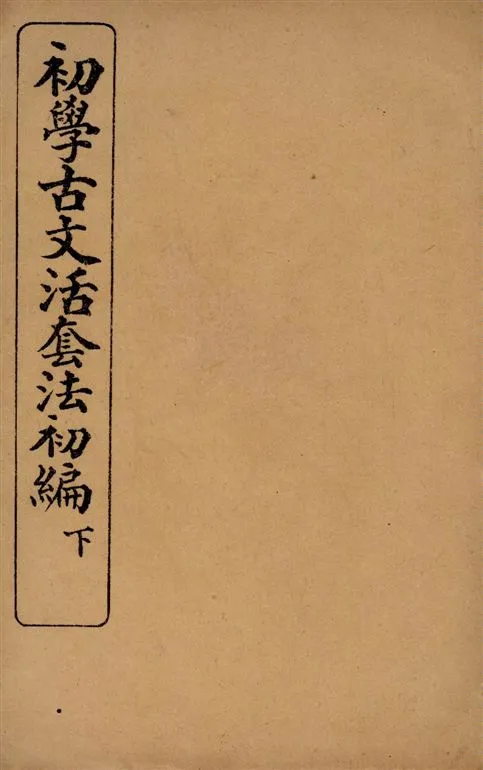 初學古文活套法初編
下